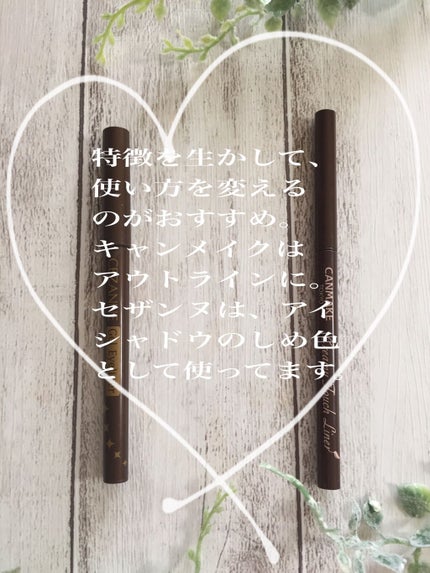 特徴を生かして、
使い方を変える
のがおすすめ。
キャンメイクは
アウトラインに。
セザンヌは、アイ
シャドウのしめ色
として使ってます。
CANMAKE
Touch Liner